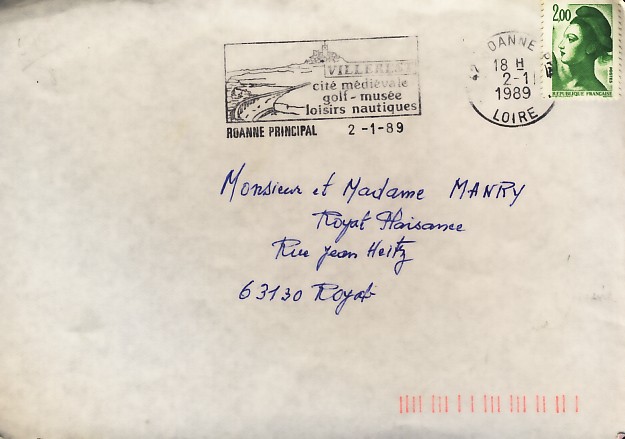 VILLEREST
cité médiévale
golf - musée
loisirs nautiques
ROANNE PRINCIPAL 2 -1-89
ROANNE
18 H
2-1
1989
LOIRE
2,00
POSTES
REPUBLIQUE FRANÇAISE
Monsieur et Madame MANRY
Royat Plaisance
Rue Jean Heitz
63130 Royat